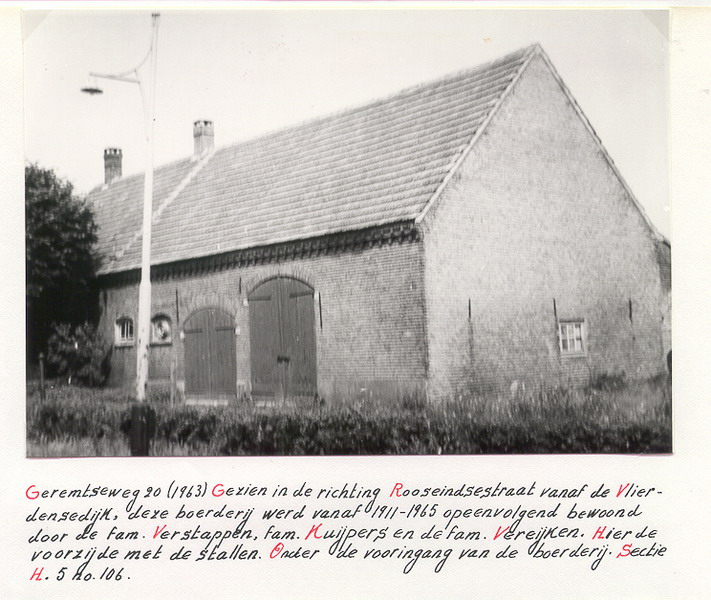 Geremtseweg 20 (1963) Gezien in de richting Rooseindsestraat vanaf de Vlier-
densedijk, deze boerderij werd vanaf 1911-1965 opeenvolgend bewoond
door de fam. Verstappen, fam. Kuijpers en de fam. Vereijken. Hier de
voorzijde met de stallen. Onder de vooringang van de boerderij. Sectie
H. 5 no. 106.